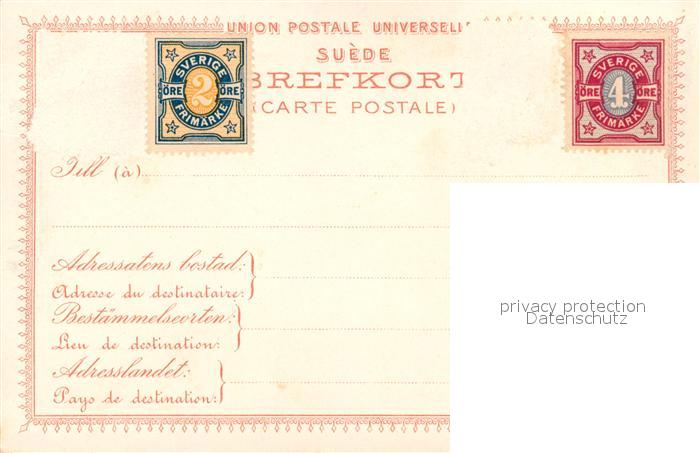 UNION POSTALE UNIVERSELL
SUÈDE
BREFKORT
(CARTE POSTALE)
SVERIGE
ÖRE 2 ÖRE
FRIMÄRKE
SVERIGE
ÖRE 4 ÖRE
FRIMÄRKE
Till (à)
Adressatens bostad:
Adresse du destinataire:
Bestämmelseorten:
Lieu de destination:
Adresslandet:
Pays de destination:
privacy protection
Datenschutz